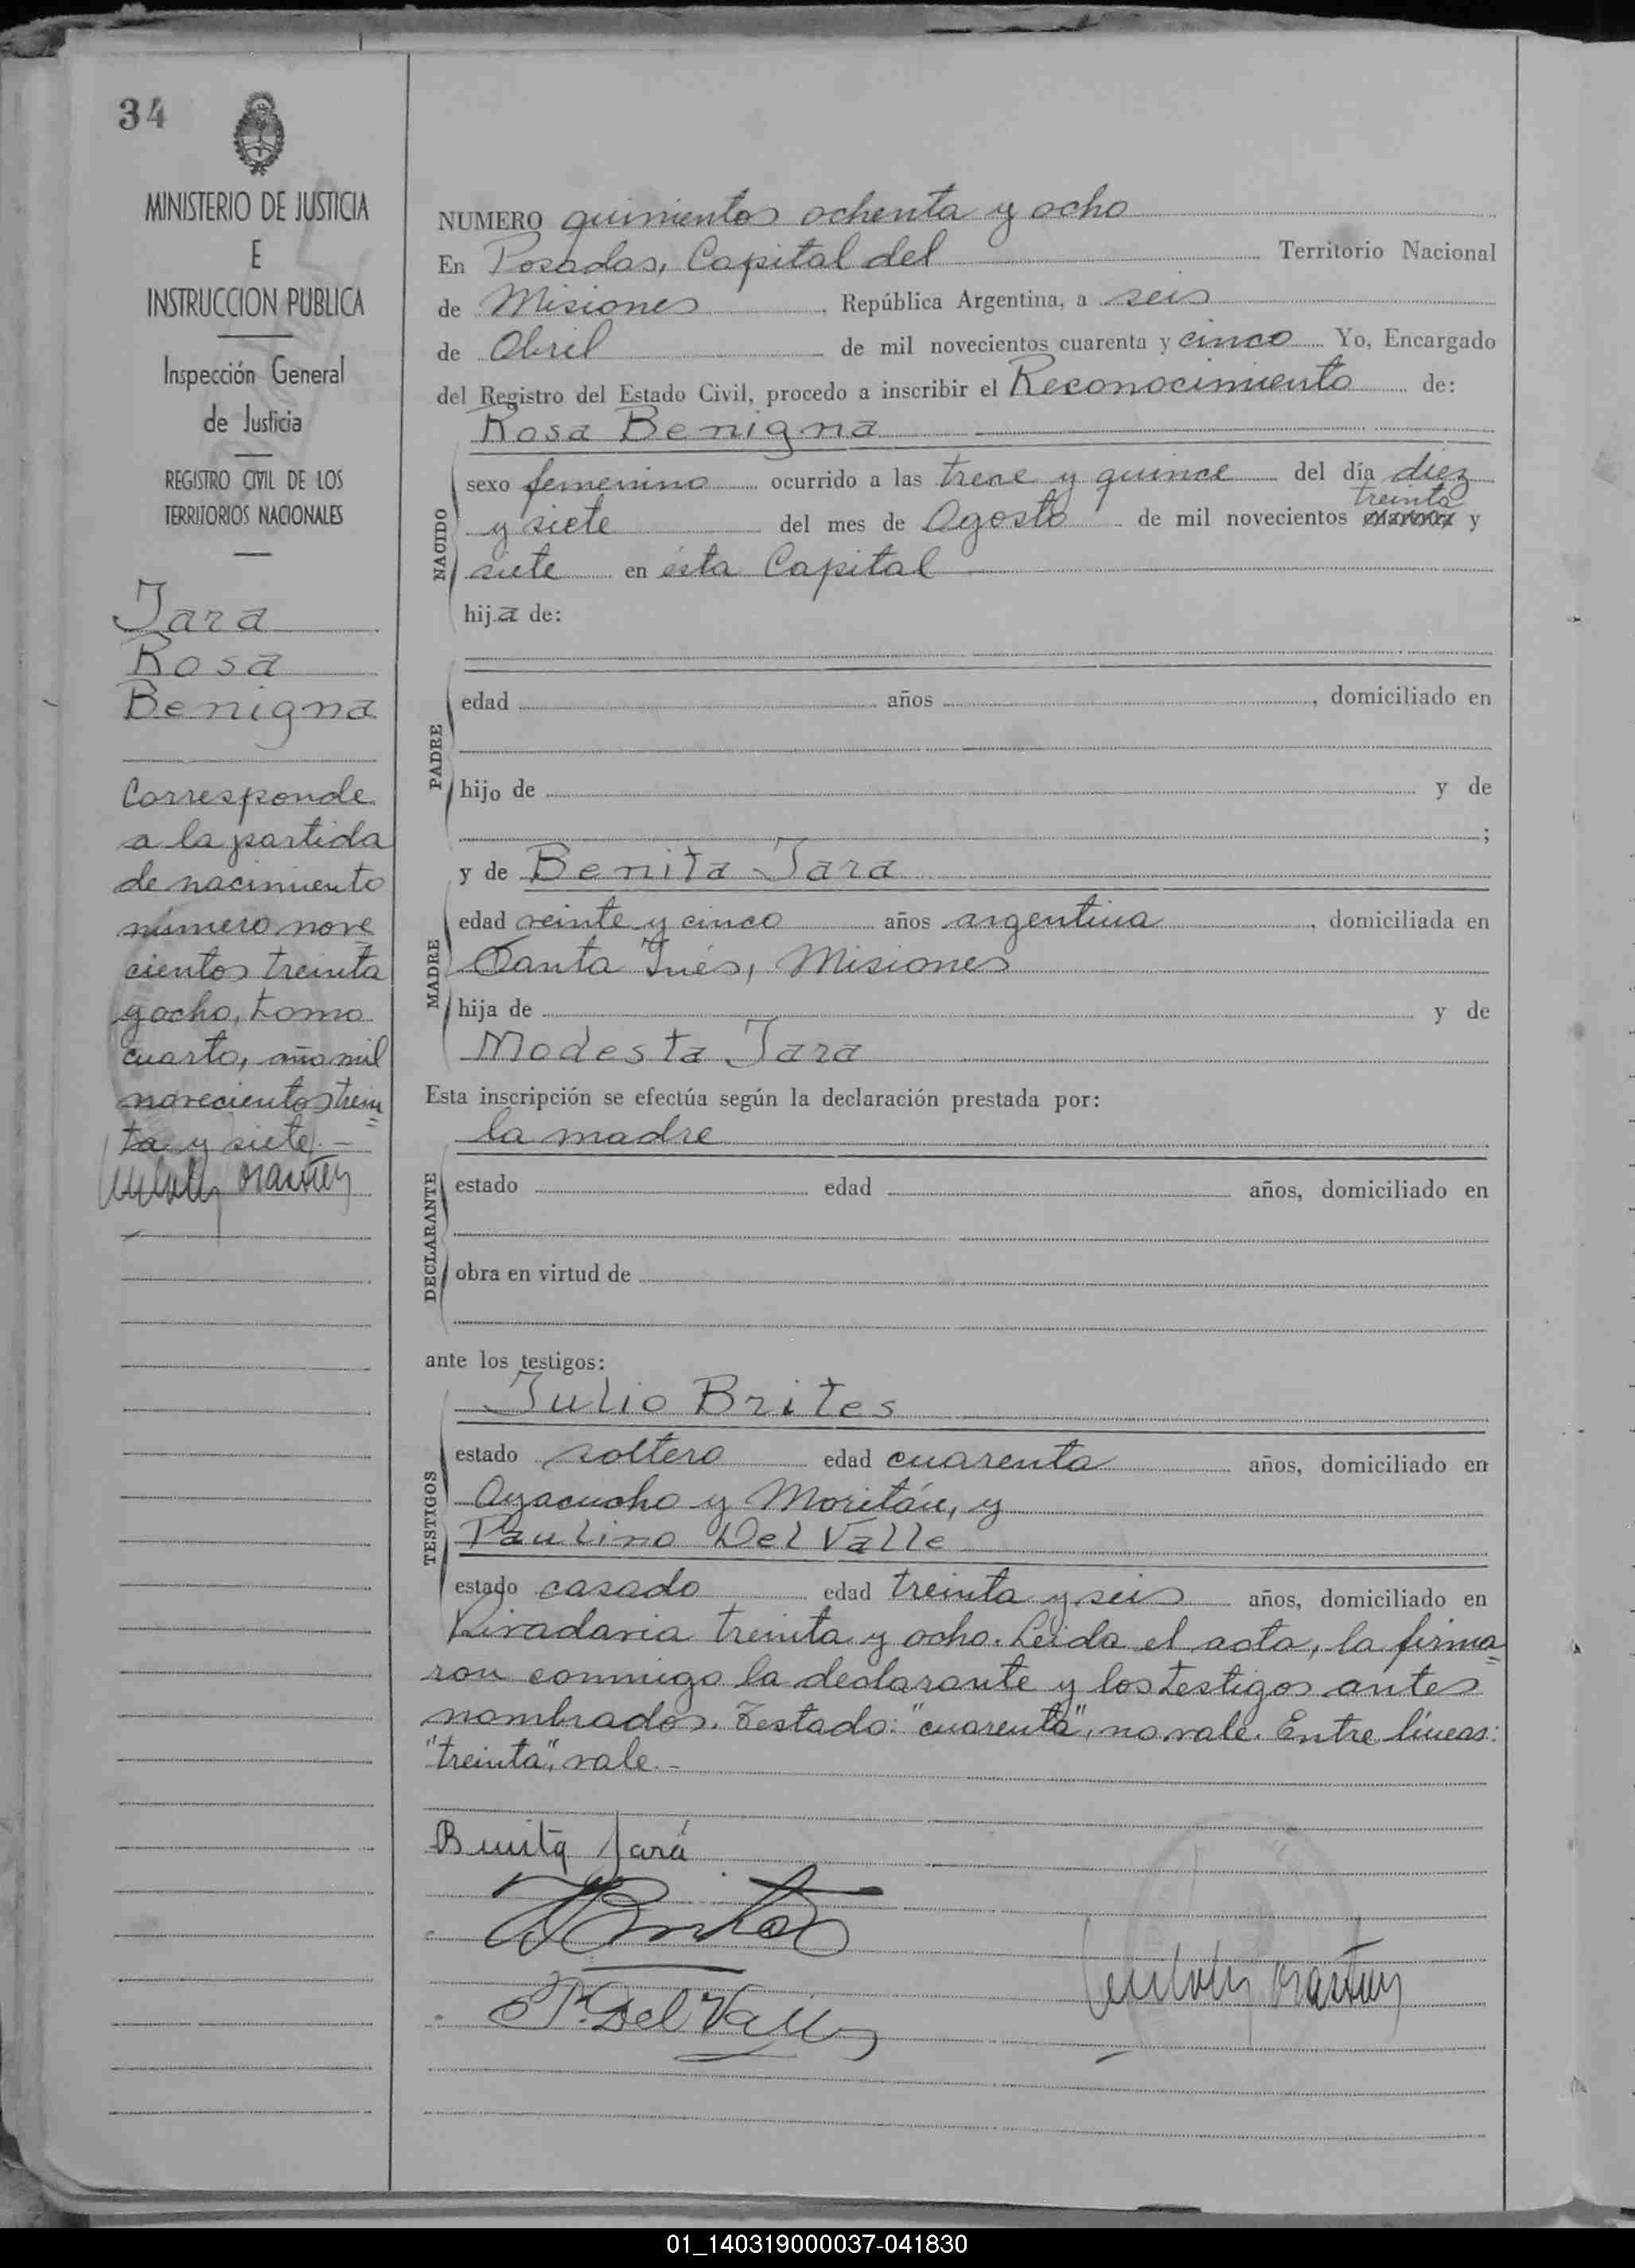 34
MINISTERIO DE JUSTICIA
E
INSTRUCCION PUBLICA
Inspección General
de Justicia
REGISTRO CIVIL DE LOS
TERRITORIOS NACIONALES
Jara
Rosa
Benigna
Corresponde
a la partida
de nacimiento
número nove
cientos treinta
y ocho, tomo
cuarto, año mil
novecientos trein
=
ta y siete.-
NUMERO quinientos ochenta y ocho
En Posadas, Capital del Territorio Nacional
de Misiones, República Argentina, a seis
de Abril de mil novecientos cuarenta y cinco Yo, Encargado
del Registro del Estado Civil, procedo a inscribir el Reconocimiento de:
Rosa Benigna
NACIDO
sexo femenino ocurrido a las trece y quince del día diez
treinta
y siete del mes de Agosto de mil novecientos cuarenta y
siete en ésta Capital
hija de:
PADRE
edad años , domiciliado en
hijo de y de
;
y de Benita Jara
MADRE
edad veinte y cinco años argentina , domiciliada en
Santa Inés, Misiones
hija de y de
Modesta Jara
Esta inscripción se efectúa según la declaración prestada por:
la madre
DECLARANTE
estado edad años, domiciliado en
obra en virtud de
ante los testigos:
Julio Brites
TESTIGOS
estado soltero edad cuarenta años, domiciliado en
Ayacucho y Moritán, y
Paulino Del Valle
estado casado edad treinta y seis años, domiciliado en
Rivadavia treinta y ocho. Leida el acta, la firma
=
ron conmigo la declarante y los testigos antes
nombrados. Testado: "cuarenta", no vale. Entre líneas:
"treinta", vale.-
Benita Jara
P. Del Valle
01_140319000037-041830